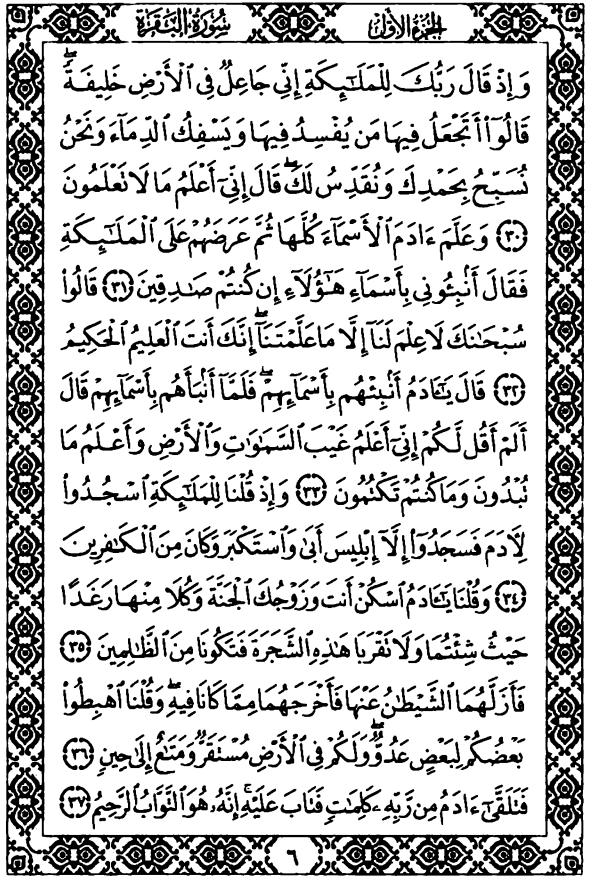 الجزء الأول سورة البقرة
وَإِذْ قَالَ رَبُّكَ لِلْمَلَـٰٓئِكَةِ إِنِّى جَاعِلٌ فِى ٱلْأَرْضِ خَلِيفَةً ۖ
قَالُوٓا۟ أَتَجْعَلُ فِيهَا مَن يُفْسِدُ فِيهَا وَيَسْفِكُ ٱلدِّمَآءَ وَنَحْنُ
نُسَبِّحُ بِحَمْدِكَ وَنُقَدِّسُ لَكَ ۖ قَالَ إِنِّىٓ أَعْلَمُ مَا لَا تَعْلَمُونَ
﴿٣٠﴾ وَعَلَّمَ ءَادَمَ ٱلْأَسْمَآءَ كُلَّهَا ثُمَّ عَرَضَهُمْ عَلَى ٱلْمَلَـٰٓئِكَةِ
فَقَالَ أَنۢبِـُٔونِى بِأَسْمَآءِ هَـٰٓؤُلَآءِ إِن كُنتُمْ صَـٰدِقِينَ ﴿٣١﴾ قَالُوا۟
سُبْحَـٰنَكَ لَا عِلْمَ لَنَآ إِلَّا مَا عَلَّمْتَنَآ ۖ إِنَّكَ أَنتَ ٱلْعَلِيمُ ٱلْحَكِيمُ
﴿٣٢﴾ قَالَ يَـٰٓـَٔادَمُ أَنۢبِئْهُم بِأَسْمَآئِهِمْ ۖ فَلَمَّآ أَنۢبَأَهُم بِأَسْمَآئِهِمْ قَالَ
أَلَمْ أَقُل لَّكُمْ إِنِّىٓ أَعْلَمُ غَيْبَ ٱلسَّمَـٰوَٰتِ وَٱلْأَرْضِ وَأَعْلَمُ مَا
تُبْدُونَ وَمَا كُنتُمْ تَكْتُمُونَ ﴿٣٣﴾ وَإِذْ قُلْنَا لِلْمَلَـٰٓئِكَةِ ٱسْجُدُوا۟
لِـَٔادَمَ فَسَجَدُوٓا۟ إِلَّآ إِبْلِيسَ أَبَىٰ وَٱسْتَكْبَرَ وَكَانَ مِنَ ٱلْكَـٰفِرِينَ
﴿٣٤﴾ وَقُلْنَا يَـٰٓـَٔادَمُ ٱسْكُنْ أَنتَ وَزَوْجُكَ ٱلْجَنَّةَ وَكُلَا مِنْهَا رَغَدًا
حَيْثُ شِئْتُمَا وَلَا تَقْرَبَا هَـٰذِهِ ٱلشَّجَرَةَ فَتَكُونَا مِنَ ٱلظَّـٰلِمِينَ ﴿٣٥﴾
فَأَزَلَّهُمَا ٱلشَّيْطَـٰنُ عَنْهَا فَأَخْرَجَهُمَا مِمَّا كَانَا فِيهِ ۖ وَقُلْنَا ٱهْبِطُوا۟
بَعْضُكُمْ لِبَعْضٍ عَدُوٌّ ۖ وَلَكُمْ فِى ٱلْأَرْضِ مُسْتَقَرٌّ وَمَتَـٰعٌ إِلَىٰ حِينٍ ﴿٣٦﴾
فَتَلَقَّىٰٓ ءَادَمُ مِن رَّبِّهِۦ كَلِمَـٰتٍ فَتَابَ عَلَيْهِ ۚ إِنَّهُۥ هُوَ ٱلتَّوَّابُ ٱلرَّحِيمُ ﴿٣٧﴾
٦